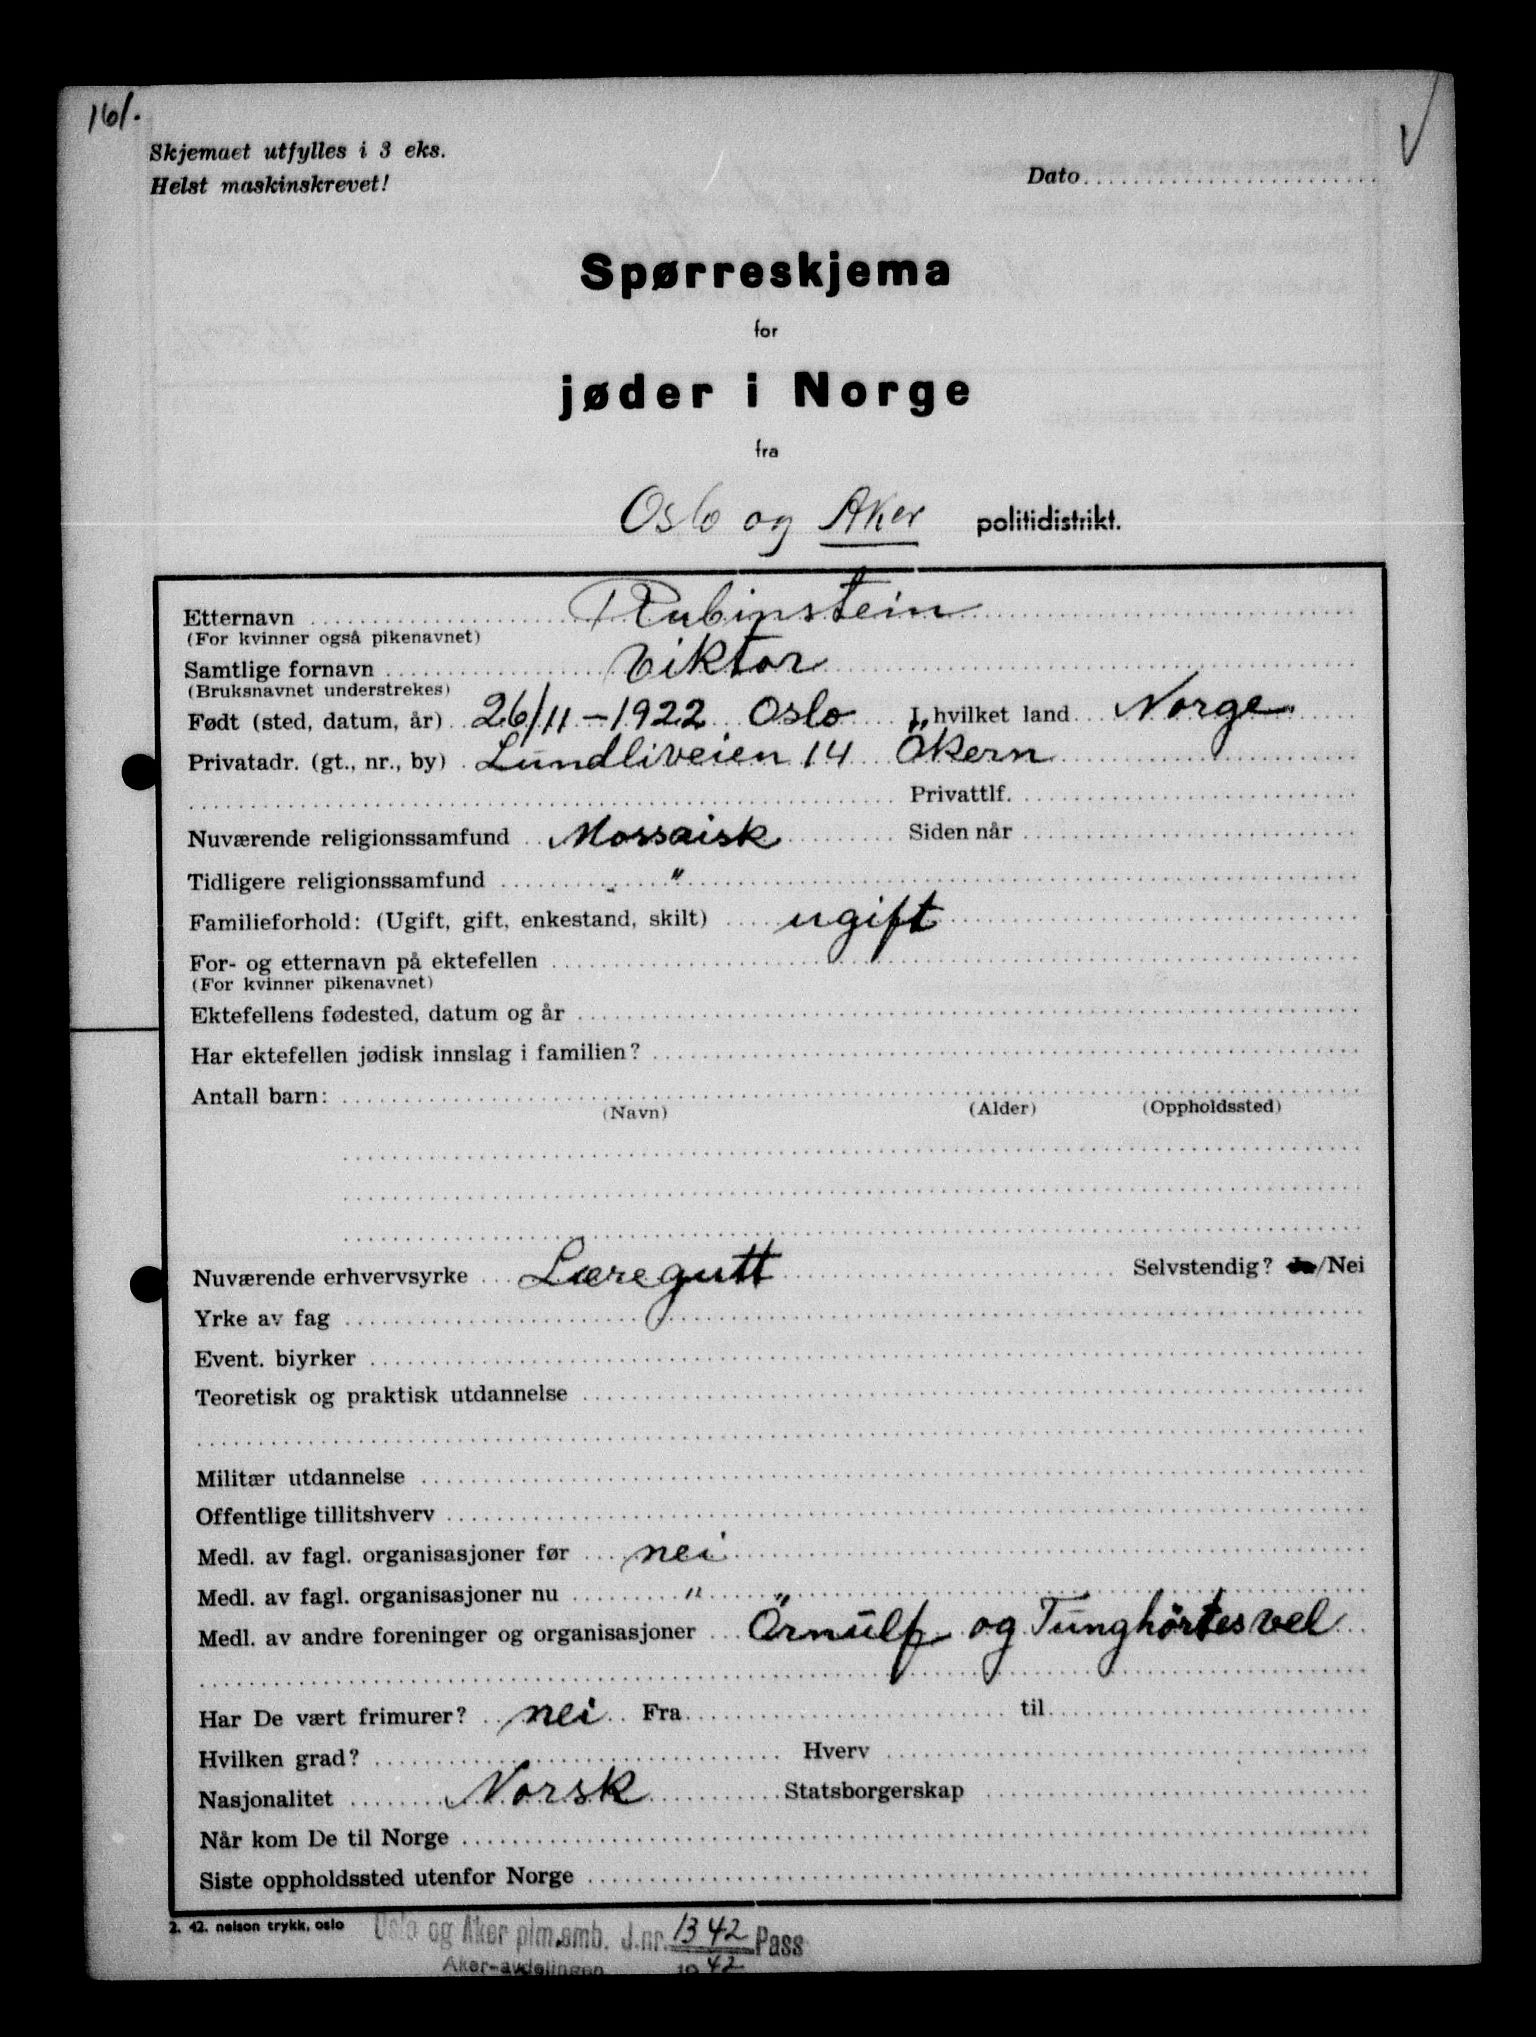 161.
Skjemaet utfylles i 3 eks.
Helst maskinskrevet!
Dato
Spørreskjema
for
jøder i Norge
fra
Oslo og Aker politidistrikt.
Etternavn Rubinstein
(For kvinner også pikenavnet)
Samtlige fornavn Viktor
(Bruksnavnet understrekes)
Født (sted, datum, år) 26/11 – 1922 Oslo I hvilket land Norge
Privatadr. (gt., nr., by) Lundliveien 14 Ökern
Privattlf.
Nuværende religionssamfund Mossaisk Siden når
Tidligere religionssamfund "
Familieforhold: (Ugift, gift, enkestand, skilt) ugift
For- og etternavn på ektefellen
(For kvinner pikenavnet)
Ektefellens fødested, datum og år
Har ektefellen jødisk innslag i familien?
Antall barn:
(Navn) (Alder) (Oppholdssted)
Nuværende erhvervsyrke Læregutt Selvstendig? Ja/Nei
Yrke av fag
Event. biyrker
Teoretisk og praktisk utdannelse
Militær utdannelse
Offentlige tillitshverv
Medl. av fagl. organisasjoner før nei
Medl. av fagl. organisasjoner nu "
Medl. av andre foreninger og organisasjoner Örnulf og Tunghörtes vel
Har De vært frimurer? nei Fra til
Hvilken grad? Hverv
Nasjonalitet Norsk Statsborgerskap
Når kom De til Norge
Siste oppholdssted utenfor Norge
2. 42. nelson trykk, oslo
Oslo og Aker plm.emb. J.nr. 1342 Pass
Aker-avdelingen 1942